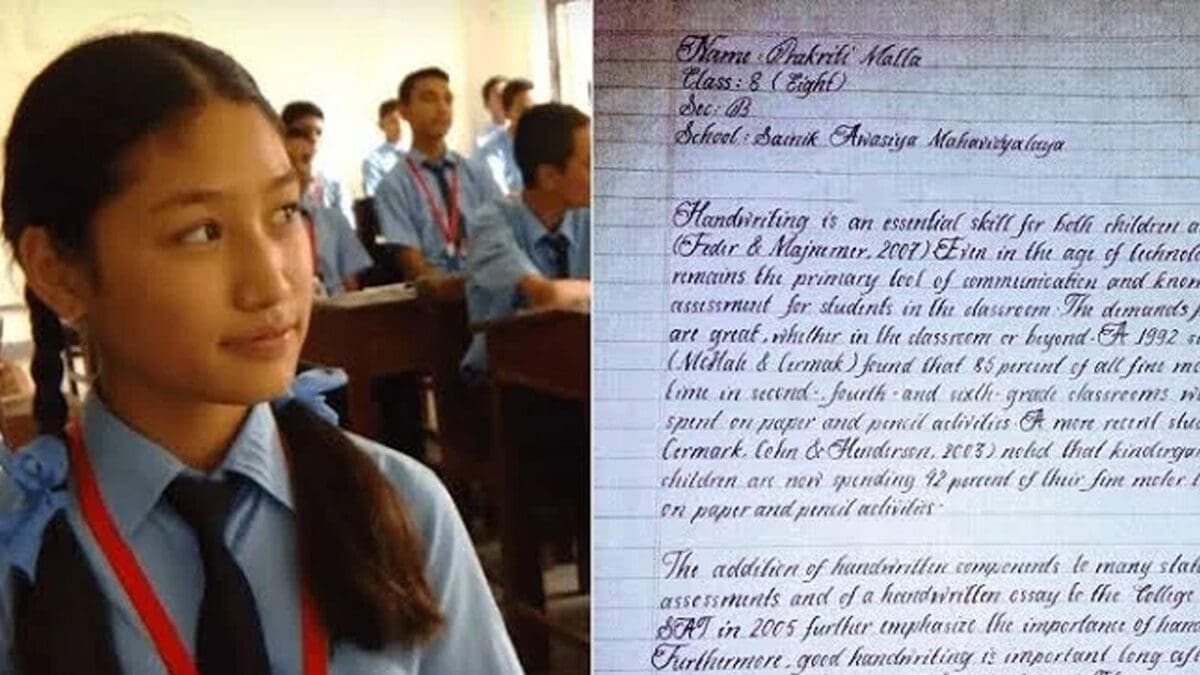 Name : Prakriti Malla
Class : 8 (Eight)
Sec : B
School : Sainik Awasiya Mahavidyalaya
Handwriting is an essential skill for both children a
(Feder & Majnemer, 2007) Even in the age of technolo
remains the primary tool of communication and know
assessment for students in the classroom. The demands
are great, whether in the classroom or beyond. A 1992 s
(McHale & Cermak) found that 85 percent of all fine mo
time in second-, fourth- and sixth-grade classrooms w
spent on paper and pencil activities. A more recent stu
Cermark, Cohn & Henderson, 2003) noted that kinderga
children are now spending 42 percent of their fine motor t
on paper and pencil activities.
The addition of handwritten components to many stat
assessments and of a handwritten essay to the College
SAT in 2005 further emphasize the importance of hand
Furthermore, good handwriting is important long aft